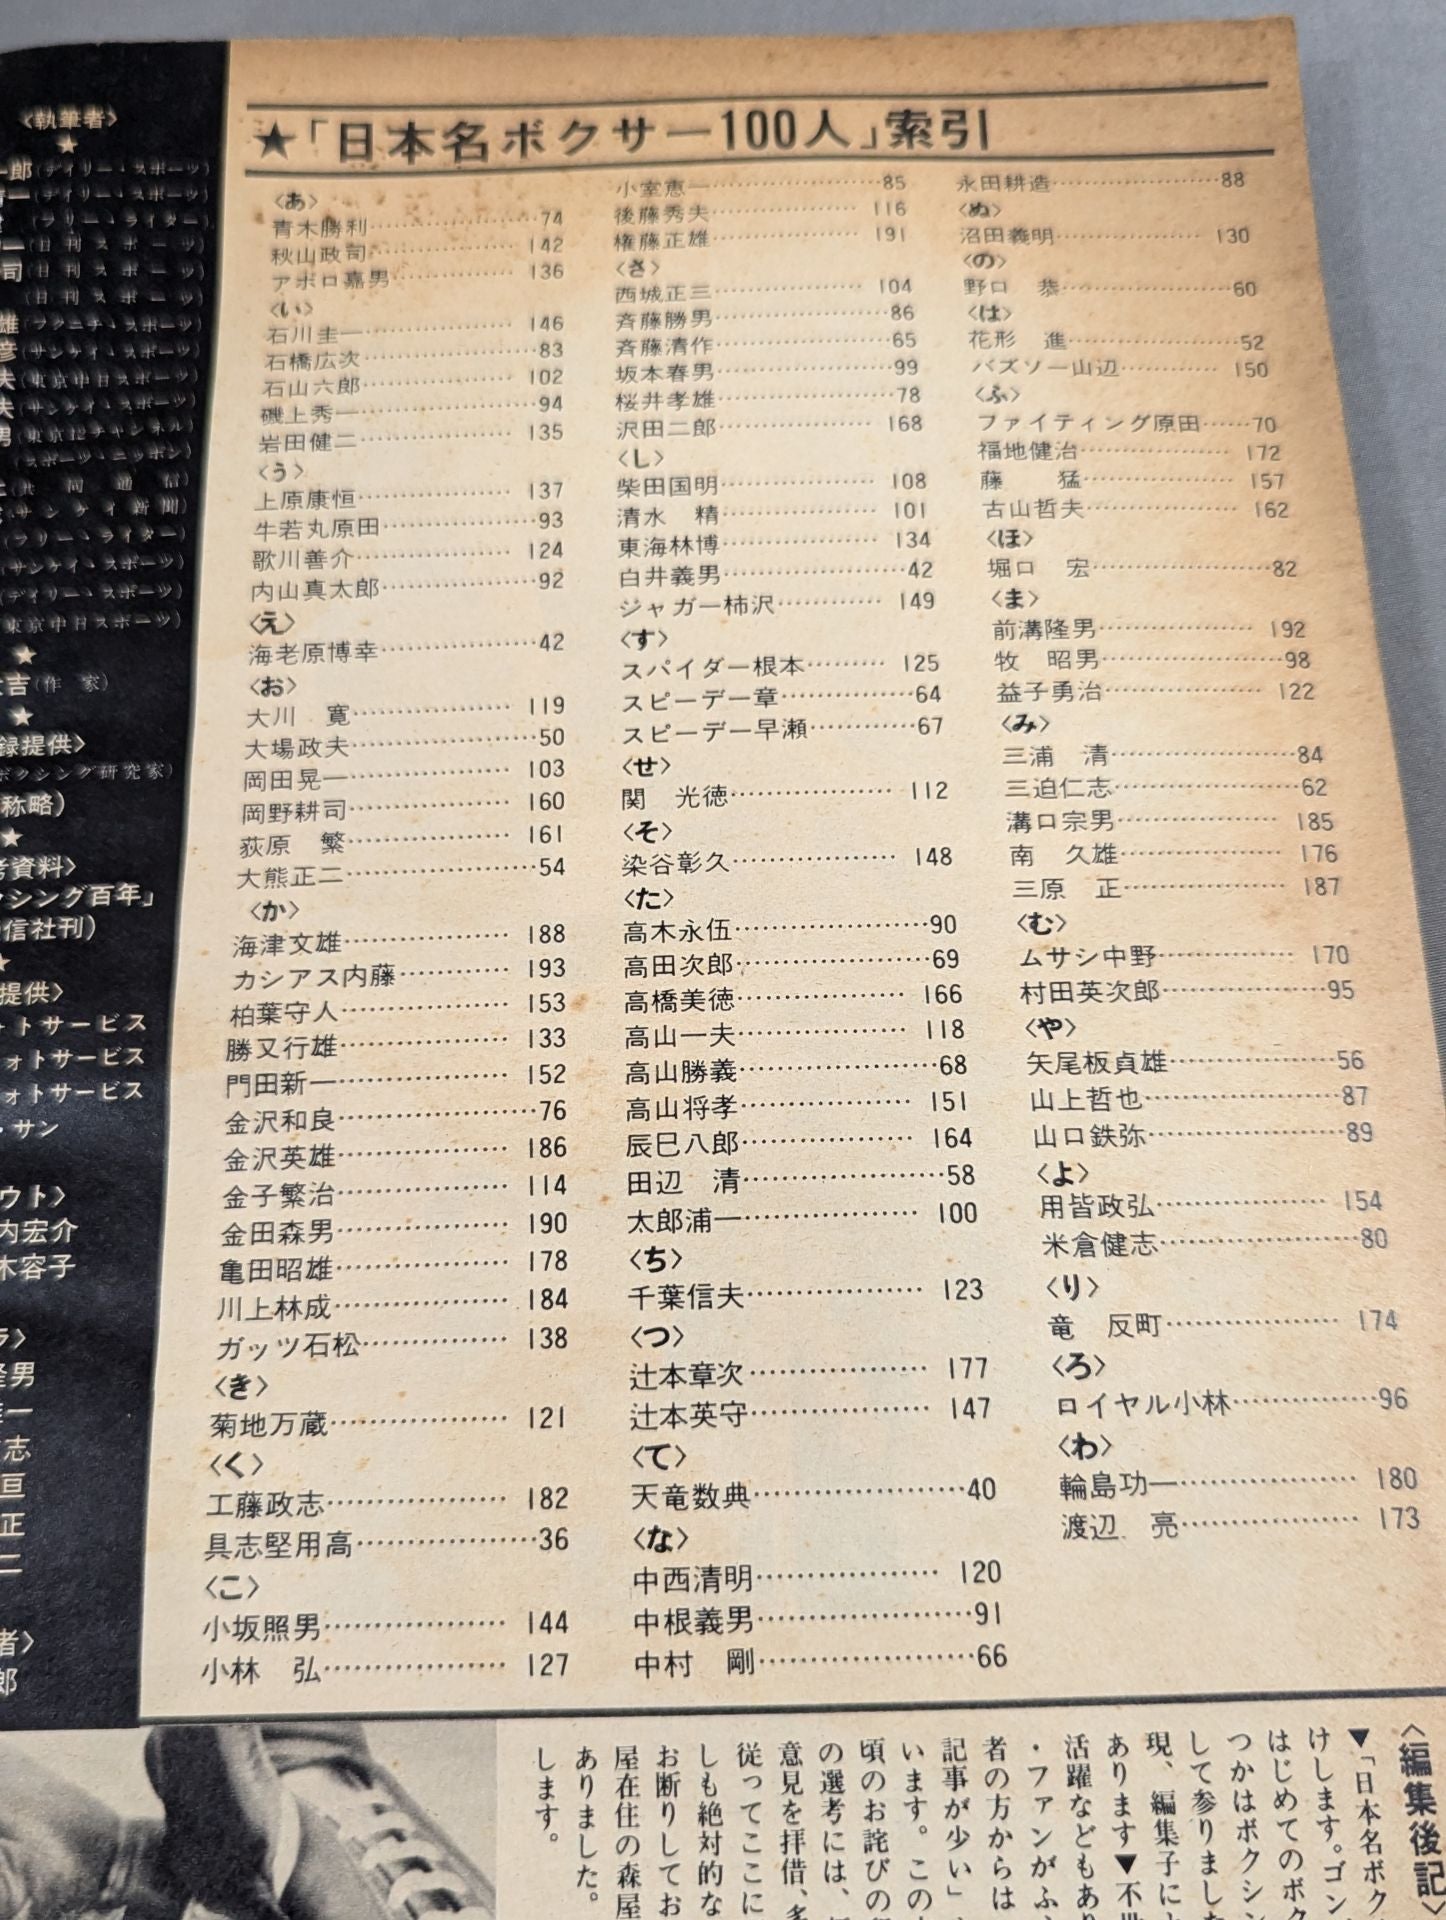 〈執筆者〉
★
郎(デイリー・スポーツ)
一(デイリー・スポーツ)
(フリー・ライター)
一(日刊スポーツ)
司(日刊スポーツ)
(日刊スポーツ)
雄(フクニチ・スポーツ)
彦(サンケイ・スポーツ)
夫(東京中日スポーツ)
夫(サンケイ・スポーツ)
男(東京12チャンネル)
(スポーツ・ニッポン)
(共同通信)
(サンケイ新聞)
(フリー・ライター)
(サンケイ・スポーツ)
(デイリー・スポーツ)
東京中日スポーツ)
★
吉(作家)
★
録提供〉
ボクシング研究家)
称略)
★
考資料〉
クシング百年」
信社刊)
★
提供〉
ォトサービス
ォトサービス
ォトサービス
・サン
ウト〉
内宏介
木容子
ラ〉
隆男
一
志
亘
正
二
者〉
郎
★「日本名ボクサー100人」索引
〈あ〉
青木勝利………74
秋山政司………142
アポロ嘉男………136
〈い〉
石川圭一………146
石橋広次………83
石山六郎………102
磯上秀一………94
岩田健二………135
〈う〉
上原康恒………137
牛若丸原田………93
歌川善介………124
内山真太郎………92
〈え〉
海老原博幸………42
〈お〉
大川　寛………119
大場政夫………50
岡田晃一………103
岡野耕司………160
荻原　繁………161
大熊正二………54
〈か〉
海津文雄………188
カシアス内藤………193
柏葉守人………153
勝又行雄………133
門田新一………152
金沢和良………76
金沢英雄………186
金子繁治………114
金田森男………190
亀田昭雄………178
川上林成………184
ガッツ石松………138
〈き〉
菊地万蔵………121
〈く〉
工藤政志………182
具志堅用高………36
〈こ〉
小坂照男………144
小林　弘………127
小室恵一………85
後藤秀夫………116
権藤正雄………191
〈さ〉
西城正三………104
斉藤勝男………86
斉藤清作………65
坂本春男………99
桜井孝雄………78
沢田二郎………168
〈し〉
柴田国明………108
清水　精………101
東海林博………134
白井義男………42
ジャガー柿沢………149
〈す〉
スパイダー根本………125
スピーデー章………64
スピーデー早瀬………67
〈せ〉
関　光徳………112
〈そ〉
染谷彰久………148
〈た〉
高木永伍………90
高田次郎………69
高橋美徳………166
高山一夫………118
高山勝義………68
高山将孝………151
辰巳八郎………164
田辺　清………58
太郎浦一………100
〈ち〉
千葉信夫………123
〈つ〉
辻本章次………177
辻本英守………147
〈て〉
天竜数典………40
〈な〉
中西清明………120
中根義男………91
中村　剛………66
永田耕造………88
〈ぬ〉
沼田義明………130
〈の〉
野口　恭………60
〈は〉
花形　進………52
バズソー山辺………150
〈ふ〉
ファイティング原田……70
福地健治………172
藤　　猛………157
古山哲夫………162
〈ほ〉
堀口　宏………82
〈ま〉
前溝隆男………192
牧　昭男………98
益子勇治………122
〈み〉
三浦　清………84
三迫仁志………62
溝口宗男………185
南　久雄………176
三原　正………187
〈む〉
ムサシ中野………170
村田英次郎………95
〈や〉
矢尾板貞雄………56
山上哲也………87
山口鉄弥………89
〈よ〉
用皆政弘………154
米倉健志………80
〈り〉
竜　反町………174
〈ろ〉
ロイヤル小林………96
〈わ〉
輪島功一………180
渡辺　亮………173
〈編集後記〉
▼「日本名ボク
けします。ゴン
はじめてのボク
つかはボクシン
して参りました
現、編集子にと
あります▼不世
活躍などもあり
・ファンがふ
者の方からは
記事が少い」
います。この
頃のお詫びの
の選考には、
意見を拝借、多
従ってここに
しも絶対的な
お断りしてお
屋在住の森屋
ありました。
します。